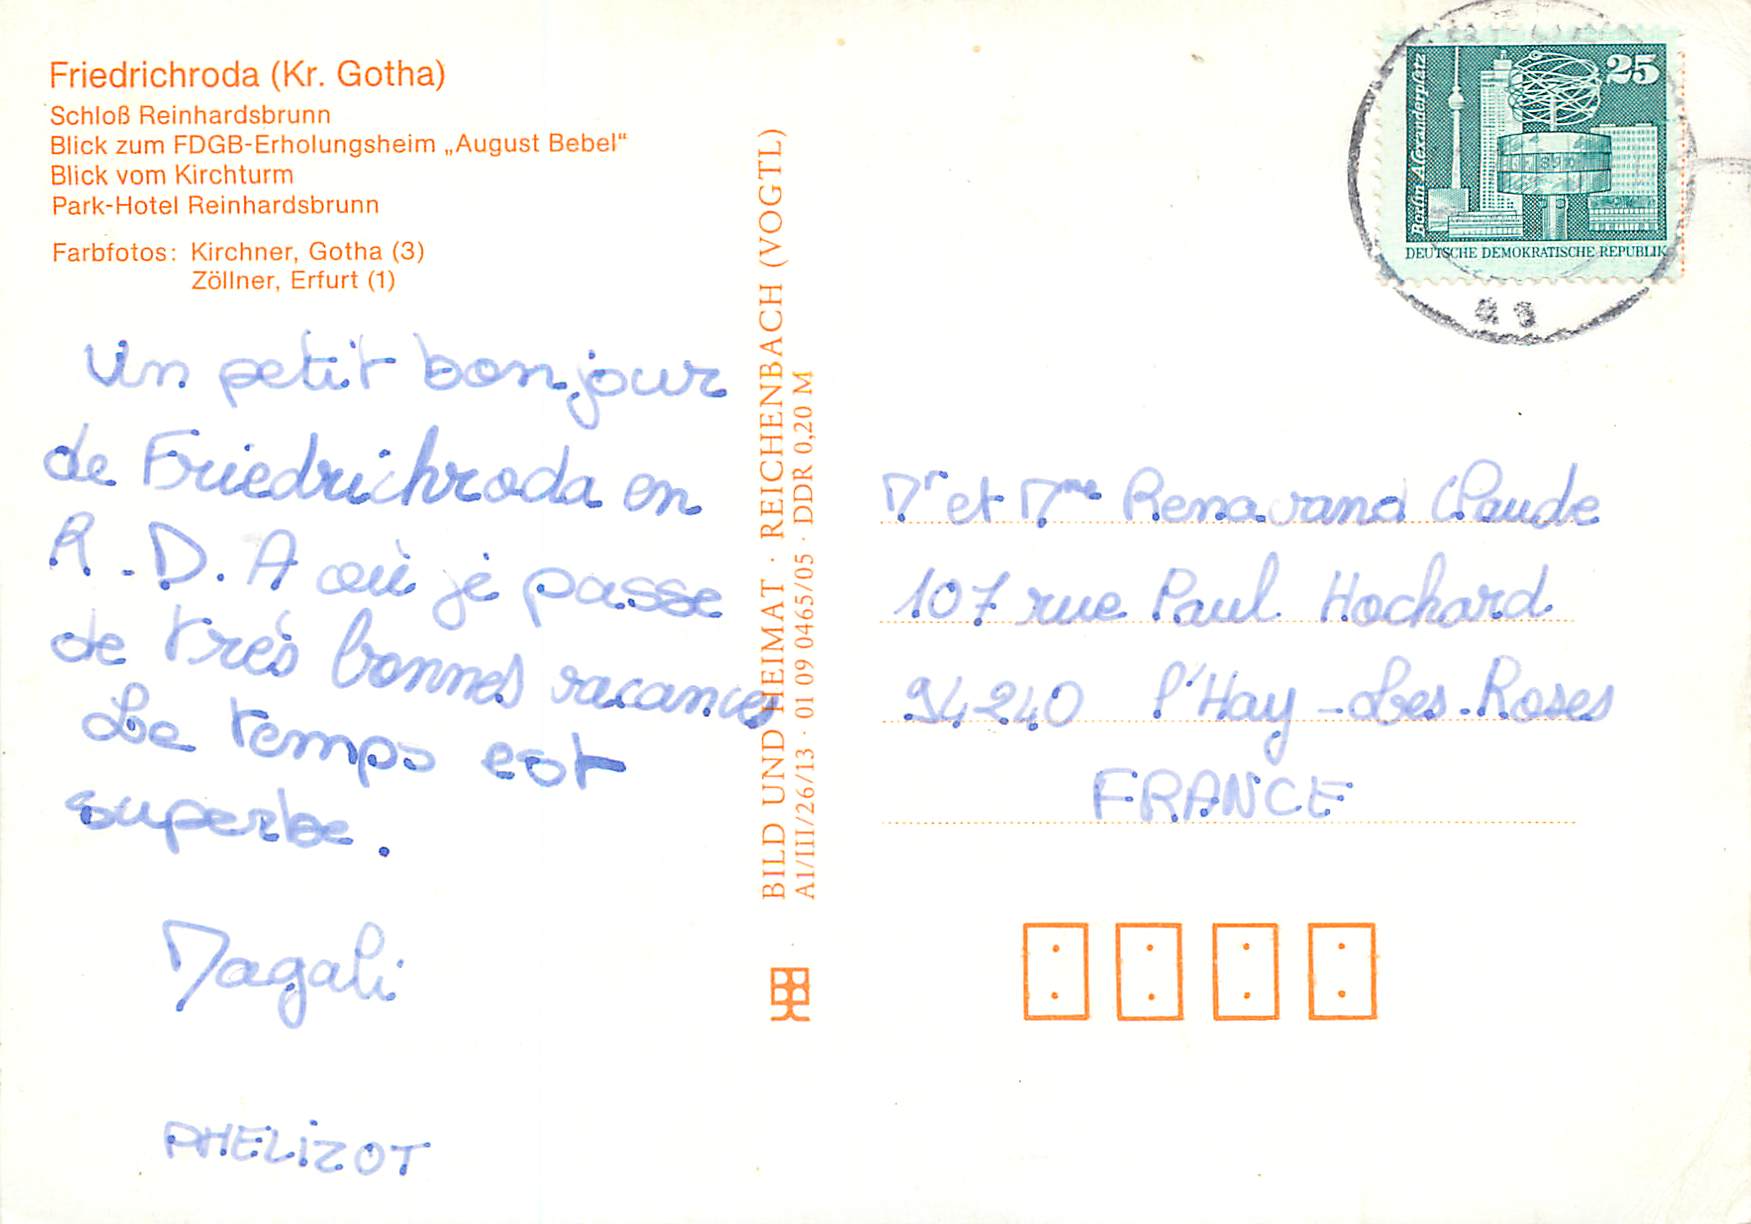 Friedrichroda (Kr. Gotha)
Schloß Reinhardsbrunn
Blick zum FDGB-Erholungsheim „August Bebel“
Blick vom Kirchturm
Park-Hotel Reinhardsbrunn
Farbfotos: Kirchner, Gotha (3)
Zöllner, Erfurt (1)
Un petit bonjour
de Friedrichroda en
R.D.A où je passe
de très bonnes vacances
Le temps est
superbe.
Magali
PHELIZOT
BILD UND HEIMAT · REICHENBACH (VOGTL)
A1/III/26/13 · 01 09 0465/05 · DDR 0,20 M
Berlin Alexanderplatz
25
DEUTSCHE DEMOKRATISCHE REPUBLIK
Mr et Mme Renavand Claude
107 rue Paul Hochard
94240 l'Hay-Les-Roses
FRANCE